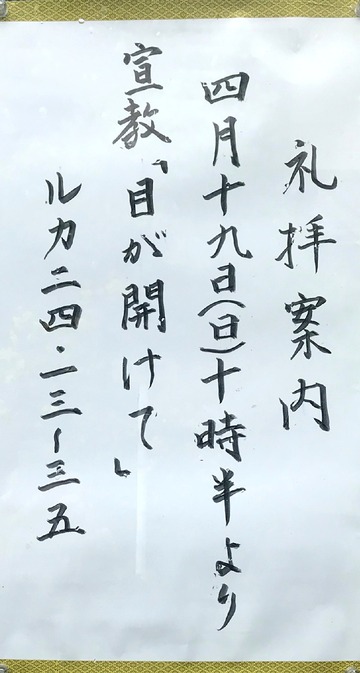 礼拝案内
四月十九日(日)十時半より
宣教「目が開けて」
ルカ二四・一三〜三五